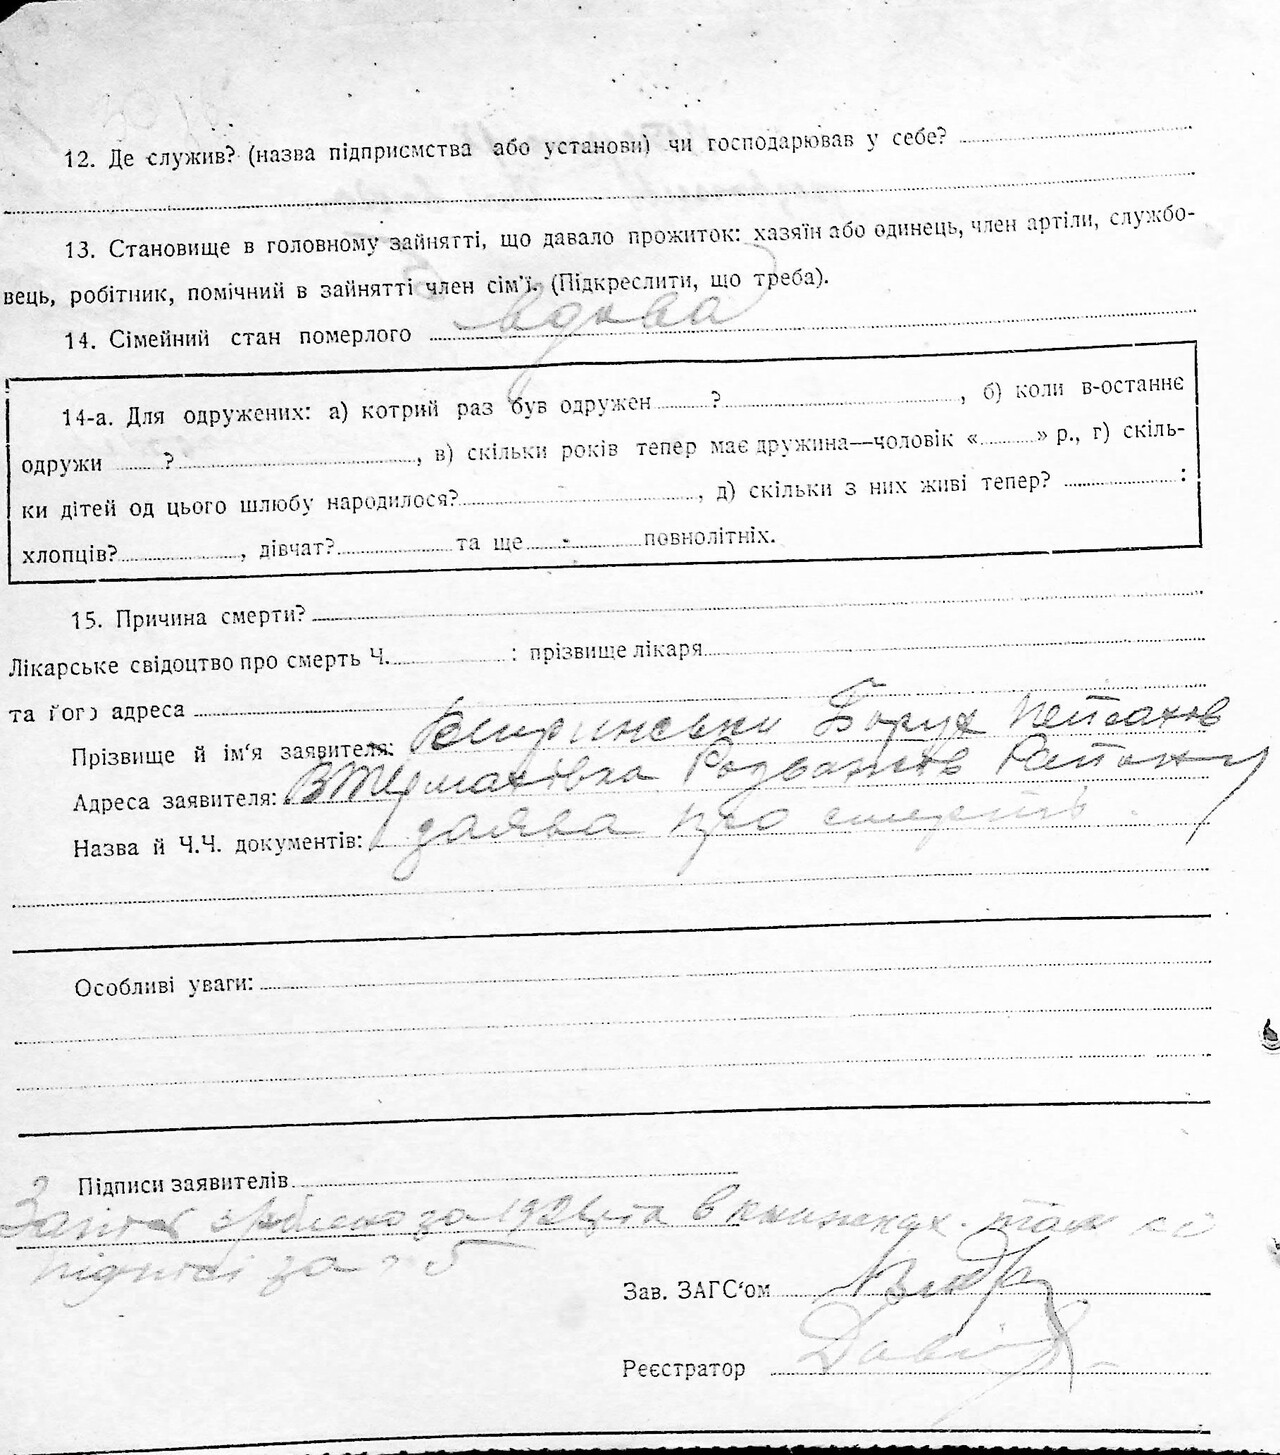 12. Де служив? (назва підприємства або установи) чи господарював у себе?
13. Становище в головному зайнятті, що давало прожиток: хазяїн або одинець, член артіли, службо-
вець, робітник, помічний в зайнятті член сім'ї. (Підкреслити, що треба).
14. Сімейний стан померлого вдова
14-а. Для одружених: а) котрий раз був одружен ? , б) коли в-останнє
одружи ? , в) скільки років тепер має дружина—чоловік « » р., г) скіль-
ки дітей од цього шлюбу народилося? - , д) скільки з них живі тепер? :
хлопців? , дівчат? та ще - повнолітніх.
15. Причина смерти?
Лікарське свідоцтво про смерть Ч. : прізвище лікаря
та його адреса
Прізвище й ім'я заявителя: Борух
Адреса заявителя: Розважів Району
Назва й Ч.Ч. документів: заява про смерть.
Особливі уваги:
Підписи заявителів
зроблено за в книжках
за 5
Зав. ЗАГС'ом
Реєстратор